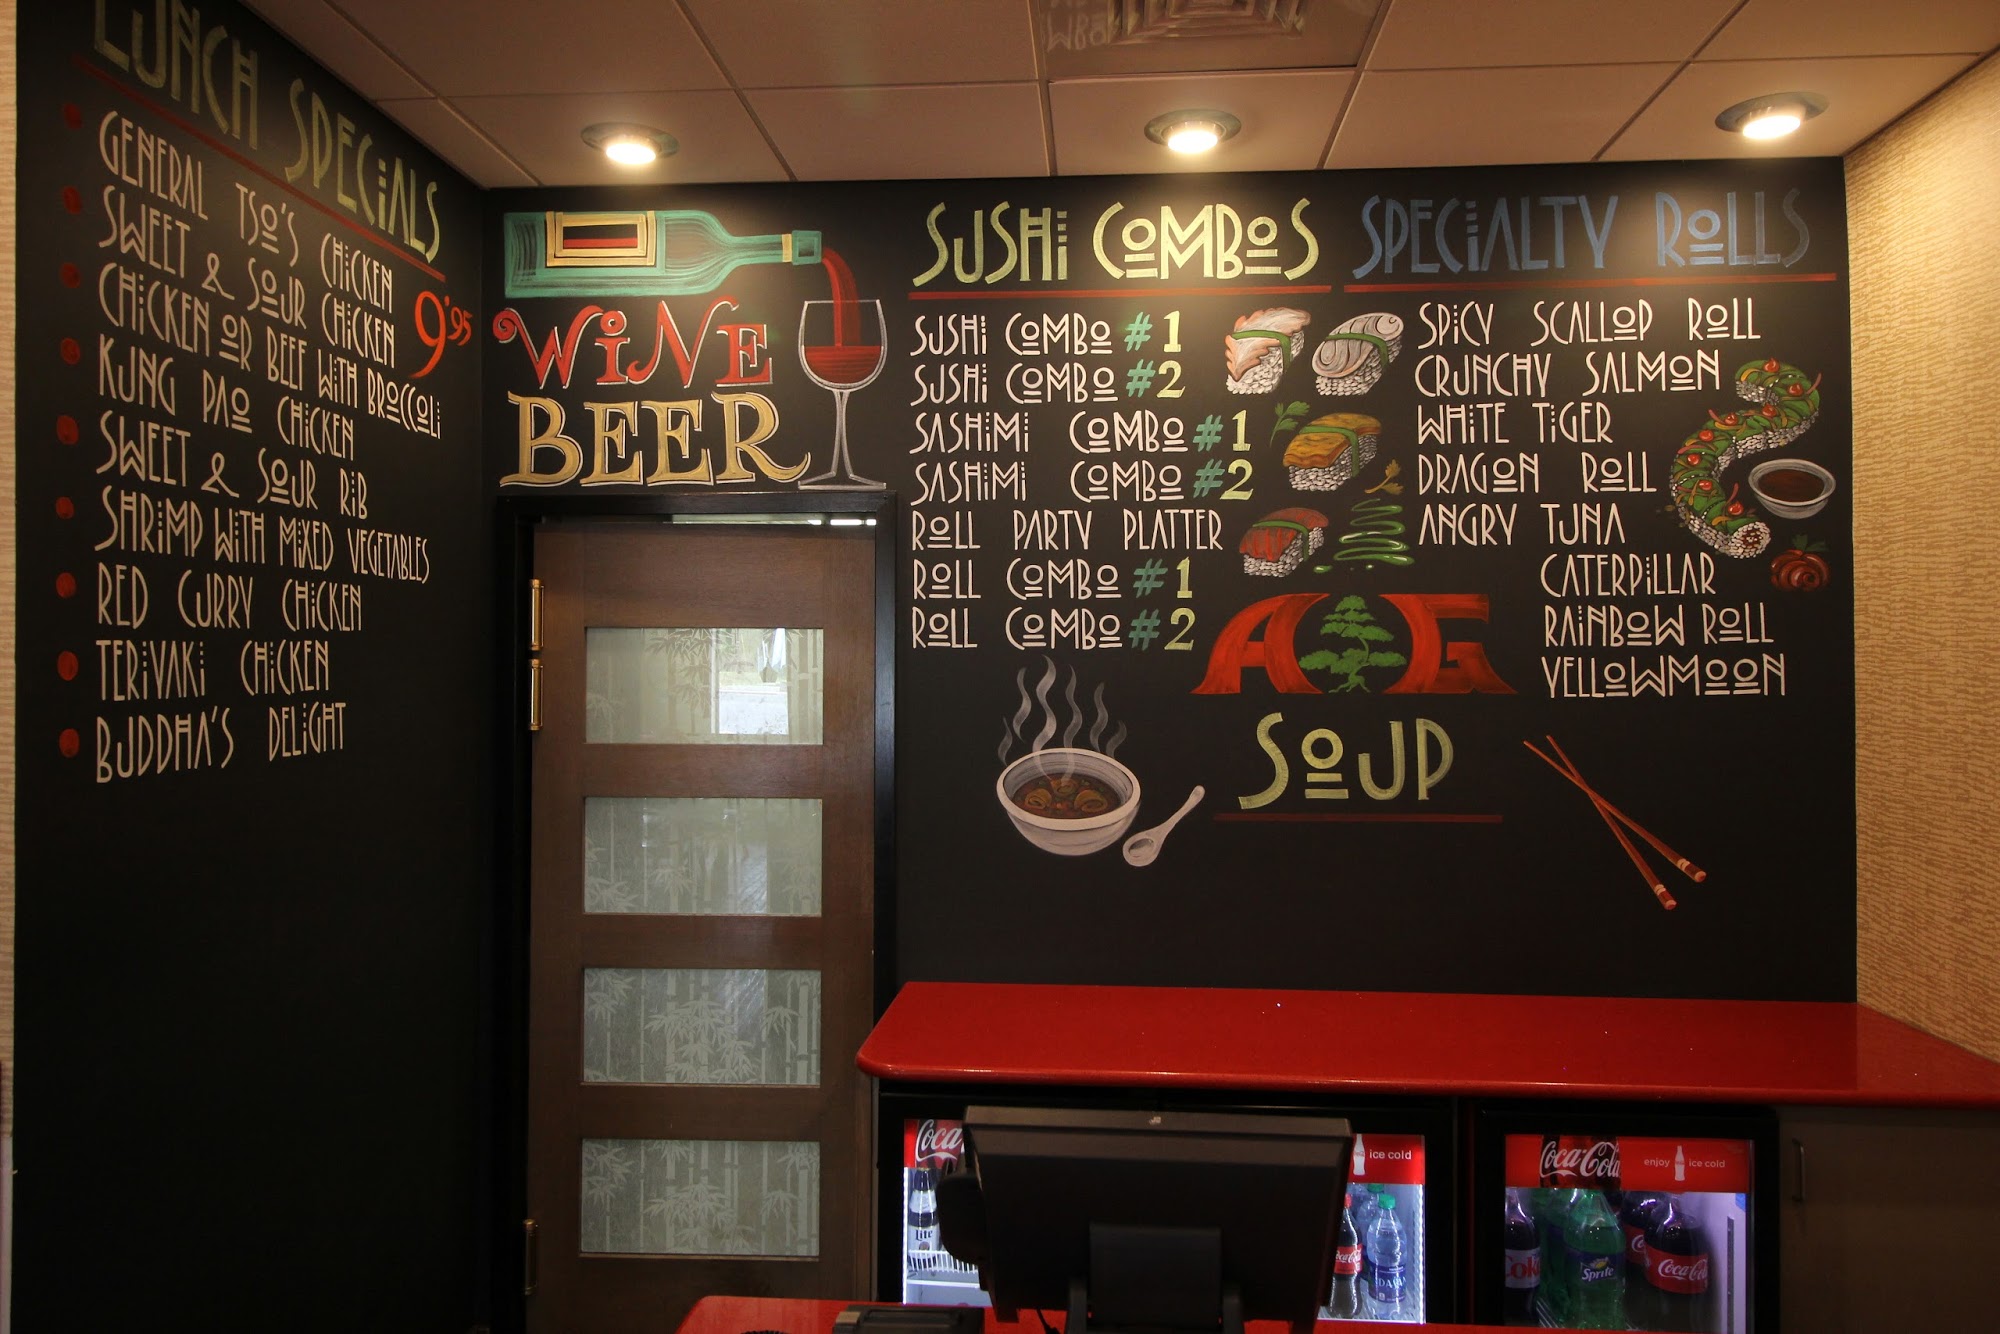 LUNCH SPECIALS
GENERAL TSO'S CHICKEN
SWEET & SOUR CHICKEN
CHICKEN OR BEEF WITH BROCCOLI
9.95
KUNG PAO CHICKEN
SWEET & SOUR RIB
SHRIMP WITH MIXED VEGETABLES
RED CURRY CHICKEN
TERIYAKI CHICKEN
BUDDHA'S DELIGHT
WINE
BEER
SUSHI COMBOS
SUSHI COMBO #1
SUSHI COMBO #2
SASHIMI COMBO #1
SASHIMI COMBO #2
ROLL PARTY PLATTER
ROLL COMBO #1
ROLL COMBO #2
SPECIALTY ROLLS
SPICY SCALLOP ROLL
CRUNCHY SALMON
WHITE TIGER
DRAGON ROLL
ANGRY TUNA
CATERPILLAR
RAINBOW ROLL
YELLOWMOON
AG
SOUP
Coca
ice cold
Coca-Cola
enjoy ice cold
Lite
Coca-Cola
DASANI
Coke
Sprite
Coca-Cola